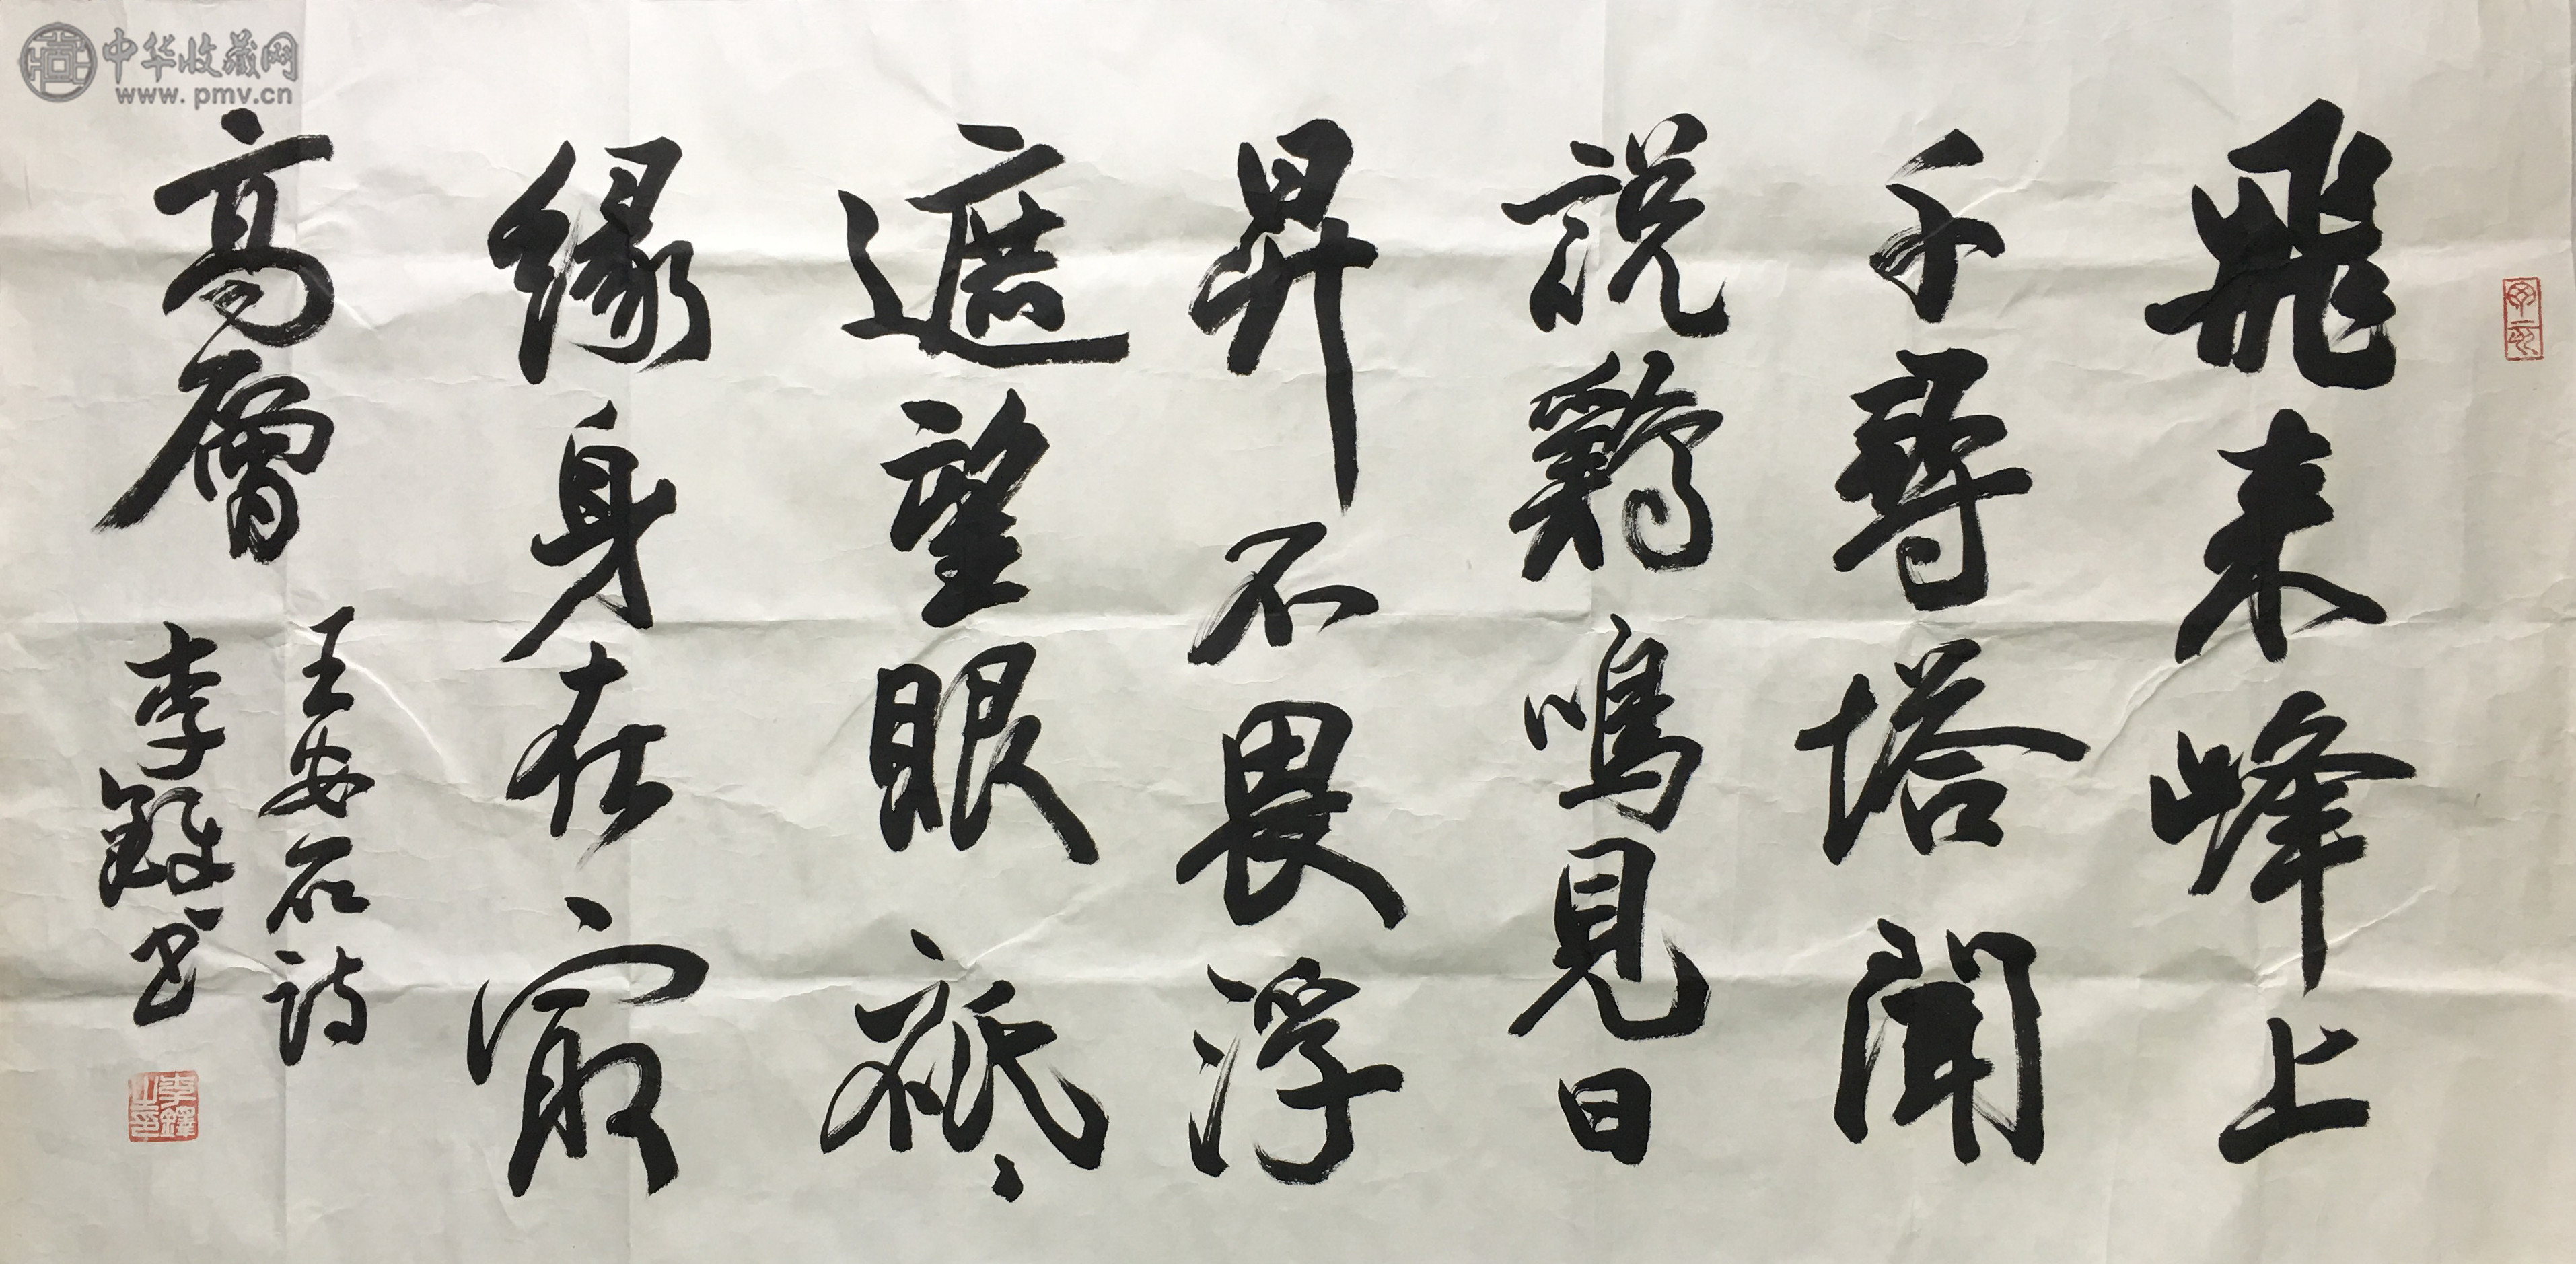 飛来峰上
千尋塔聞
説鷄鳴見日
昇不畏浮
遮望眼祗
緣身在最
高層
王安石詩
李鐸书
李鐸之印
中华收藏网
www.pmv.cn